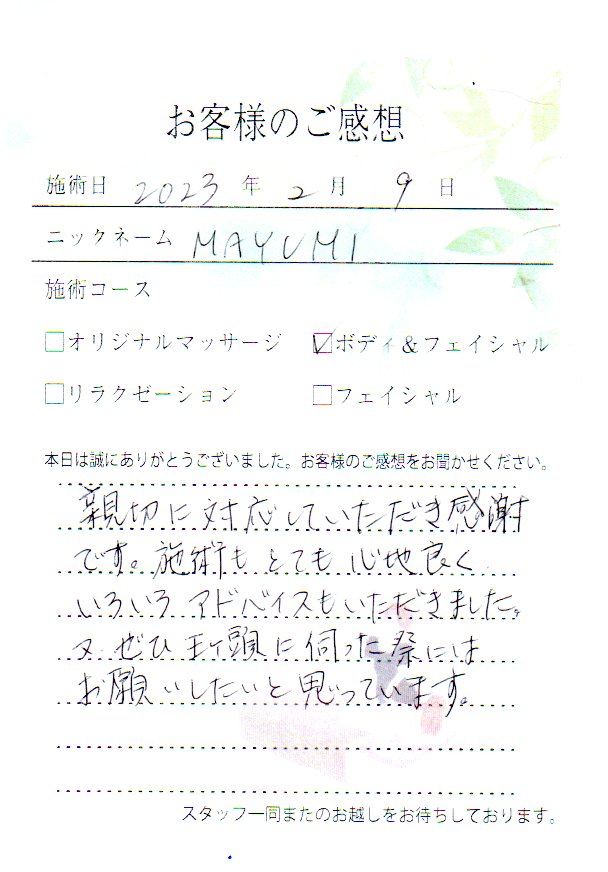 お客様のご感想
施術日 2023 年 2 月 9 日
ニックネーム MAYUMI
施術コース
□オリジナルマッサージ ☑ボディ&フェイシャル
□リラクゼーション □フェイシャル
本日は誠にありがとうございました。お客様のご感想をお聞かせください。
親切に対応していただき感謝
です。施術もとても心地良く
いろいろアドバイスもいただきました。
又、ぜひ 頭に伺った祭には
お願いしたいと思っています。
スタッフ一同またのお越しをお待ちしております。